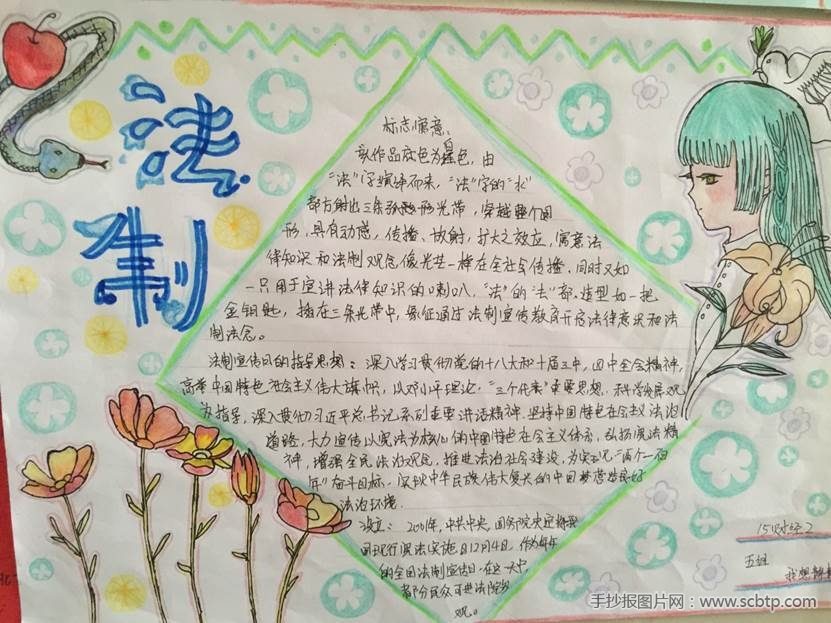 法制
标志寓意:
该作品底色为蓝色，由
"法"字演绎而来，"法"字的"水"
部方射出三条弧形光带，穿越整个圆
形，具有动感，传播、放射、扩大之效应，寓意法
律知识和法制观念像光芒一样在全社会传播，同时又如
一只用于宣讲法律知识的喇叭，"法"的"去"部造型如一把
金钥匙，插在三条光带中，象征通过法制宣传教育开启法律意识和法
制法念。
法制宣传日的指导思想：深入学习贯彻党的十八大和十届三中，四中全会精神，
高举中国特色社会主义伟大旗帜，以邓小平理论，"三个代表"重要思想，科学发展观
为指导，深入贯彻习近平总书记系列重要讲话精神，坚持中国特色社会主义法治
道路，大力宣传以宪法为核心的中国特色社会主义体系，弘扬宪法精
神，增强全民法治观念，推进法治社会建设，为实现"两个一百
年"奋斗目标，实现中华民族伟大复兴的中国梦营造良好
法治环境.
设立： 2001年，中共中央，国务院决定将我
国现行宪法实施日12月4日，作为每年
的全国法制宣传日.在这一天中
部分民众可进法院旁
观。
15财经2
五班
手抄报图片网：www.scbtp.com